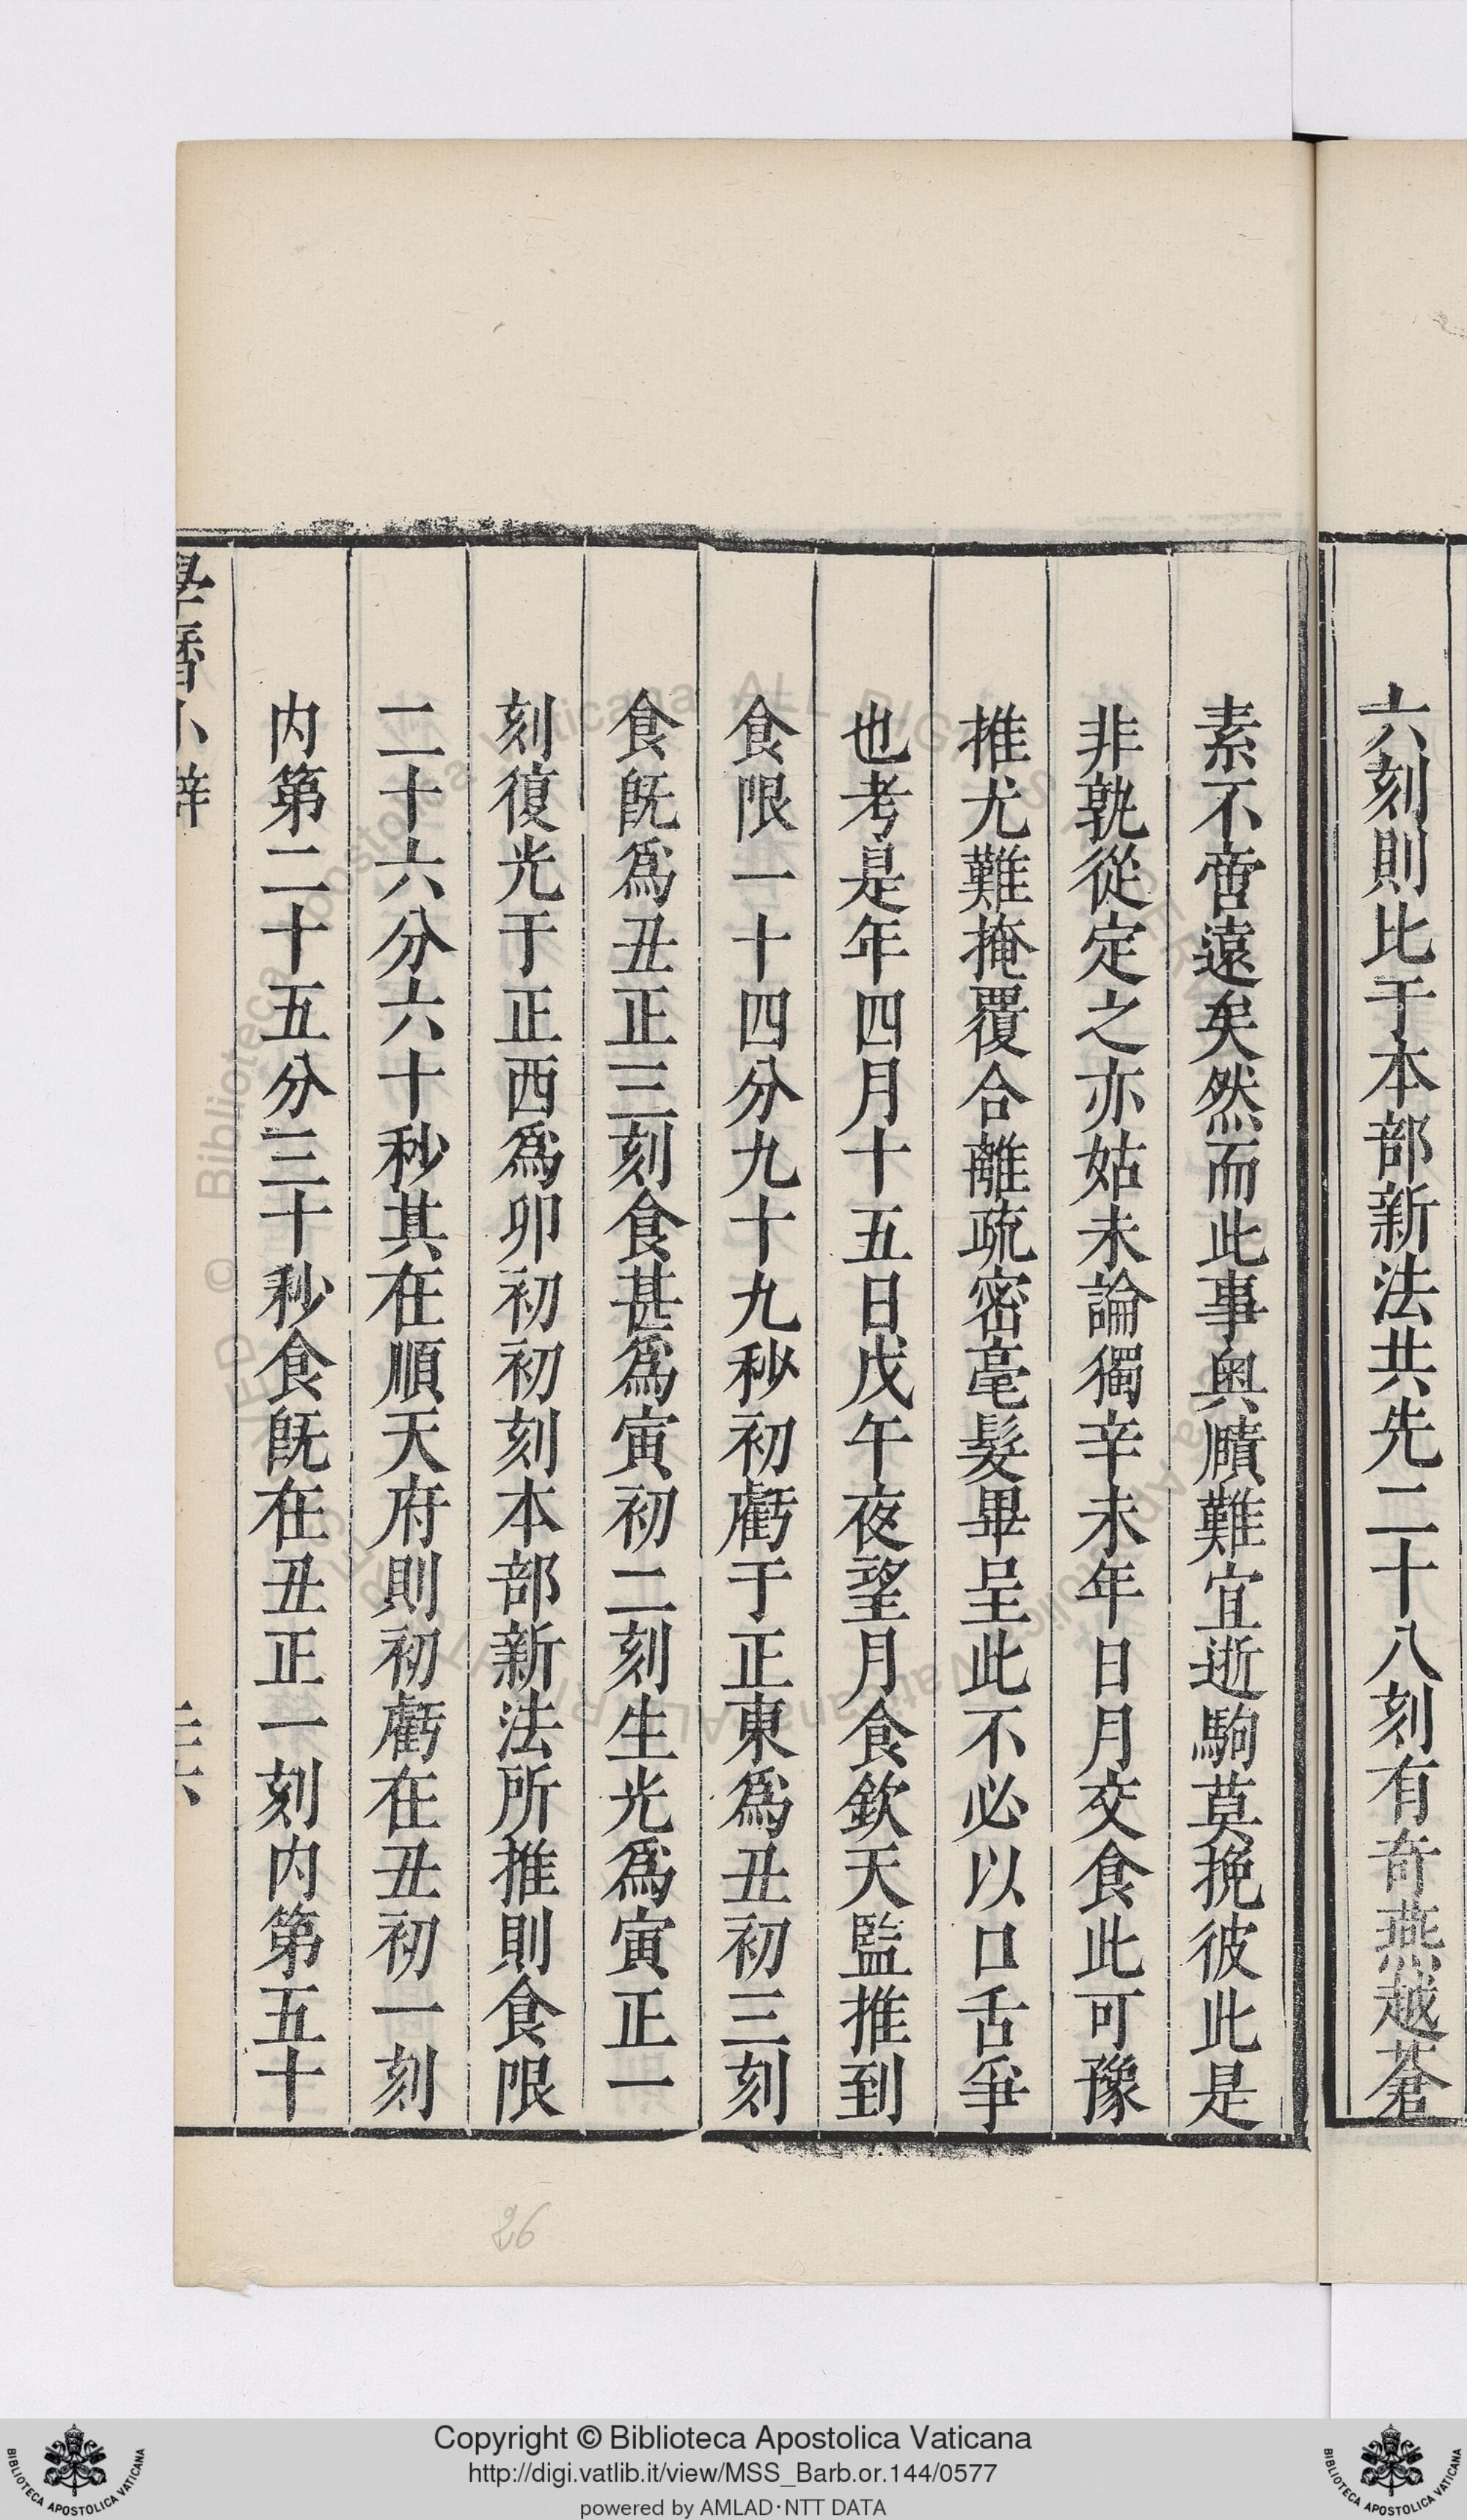 六刻則比于本部新法共先二十八刻有奇燕越蒼
素不啻遠矣然而此事奥賾難宜逝駒莫挽彼此是
非孰從定之亦姑未論獨辛未年日月交食此可豫
推尤難掩覆合離疏密毫髮畢呈此不必以口舌爭
也考是年四月十五日戊午夜望月食欽天監推到
食限一十四分九十九秒初虧于正東為丑初三刻
食旣為丑正三刻食甚為寅初二刻生光為寅正一
刻復光于正西為卯初初刻本部新法所推則食限
二十六分六十秒其在順天府則初虧在丑初一刻
内第二十五分三十秒食旣在丑正一刻内第五十
學曆小辯
二六
26
Copyright © Biblioteca Apostolica Vaticana
http://digi.vatlib.it/view/MSS_Barb.or.144/0577
powered by AMLAD·NTT DATA
BIBLIOTECA APOSTOLICA VATICANA
BIBLIOTECA APOSTOLICA VATICANA